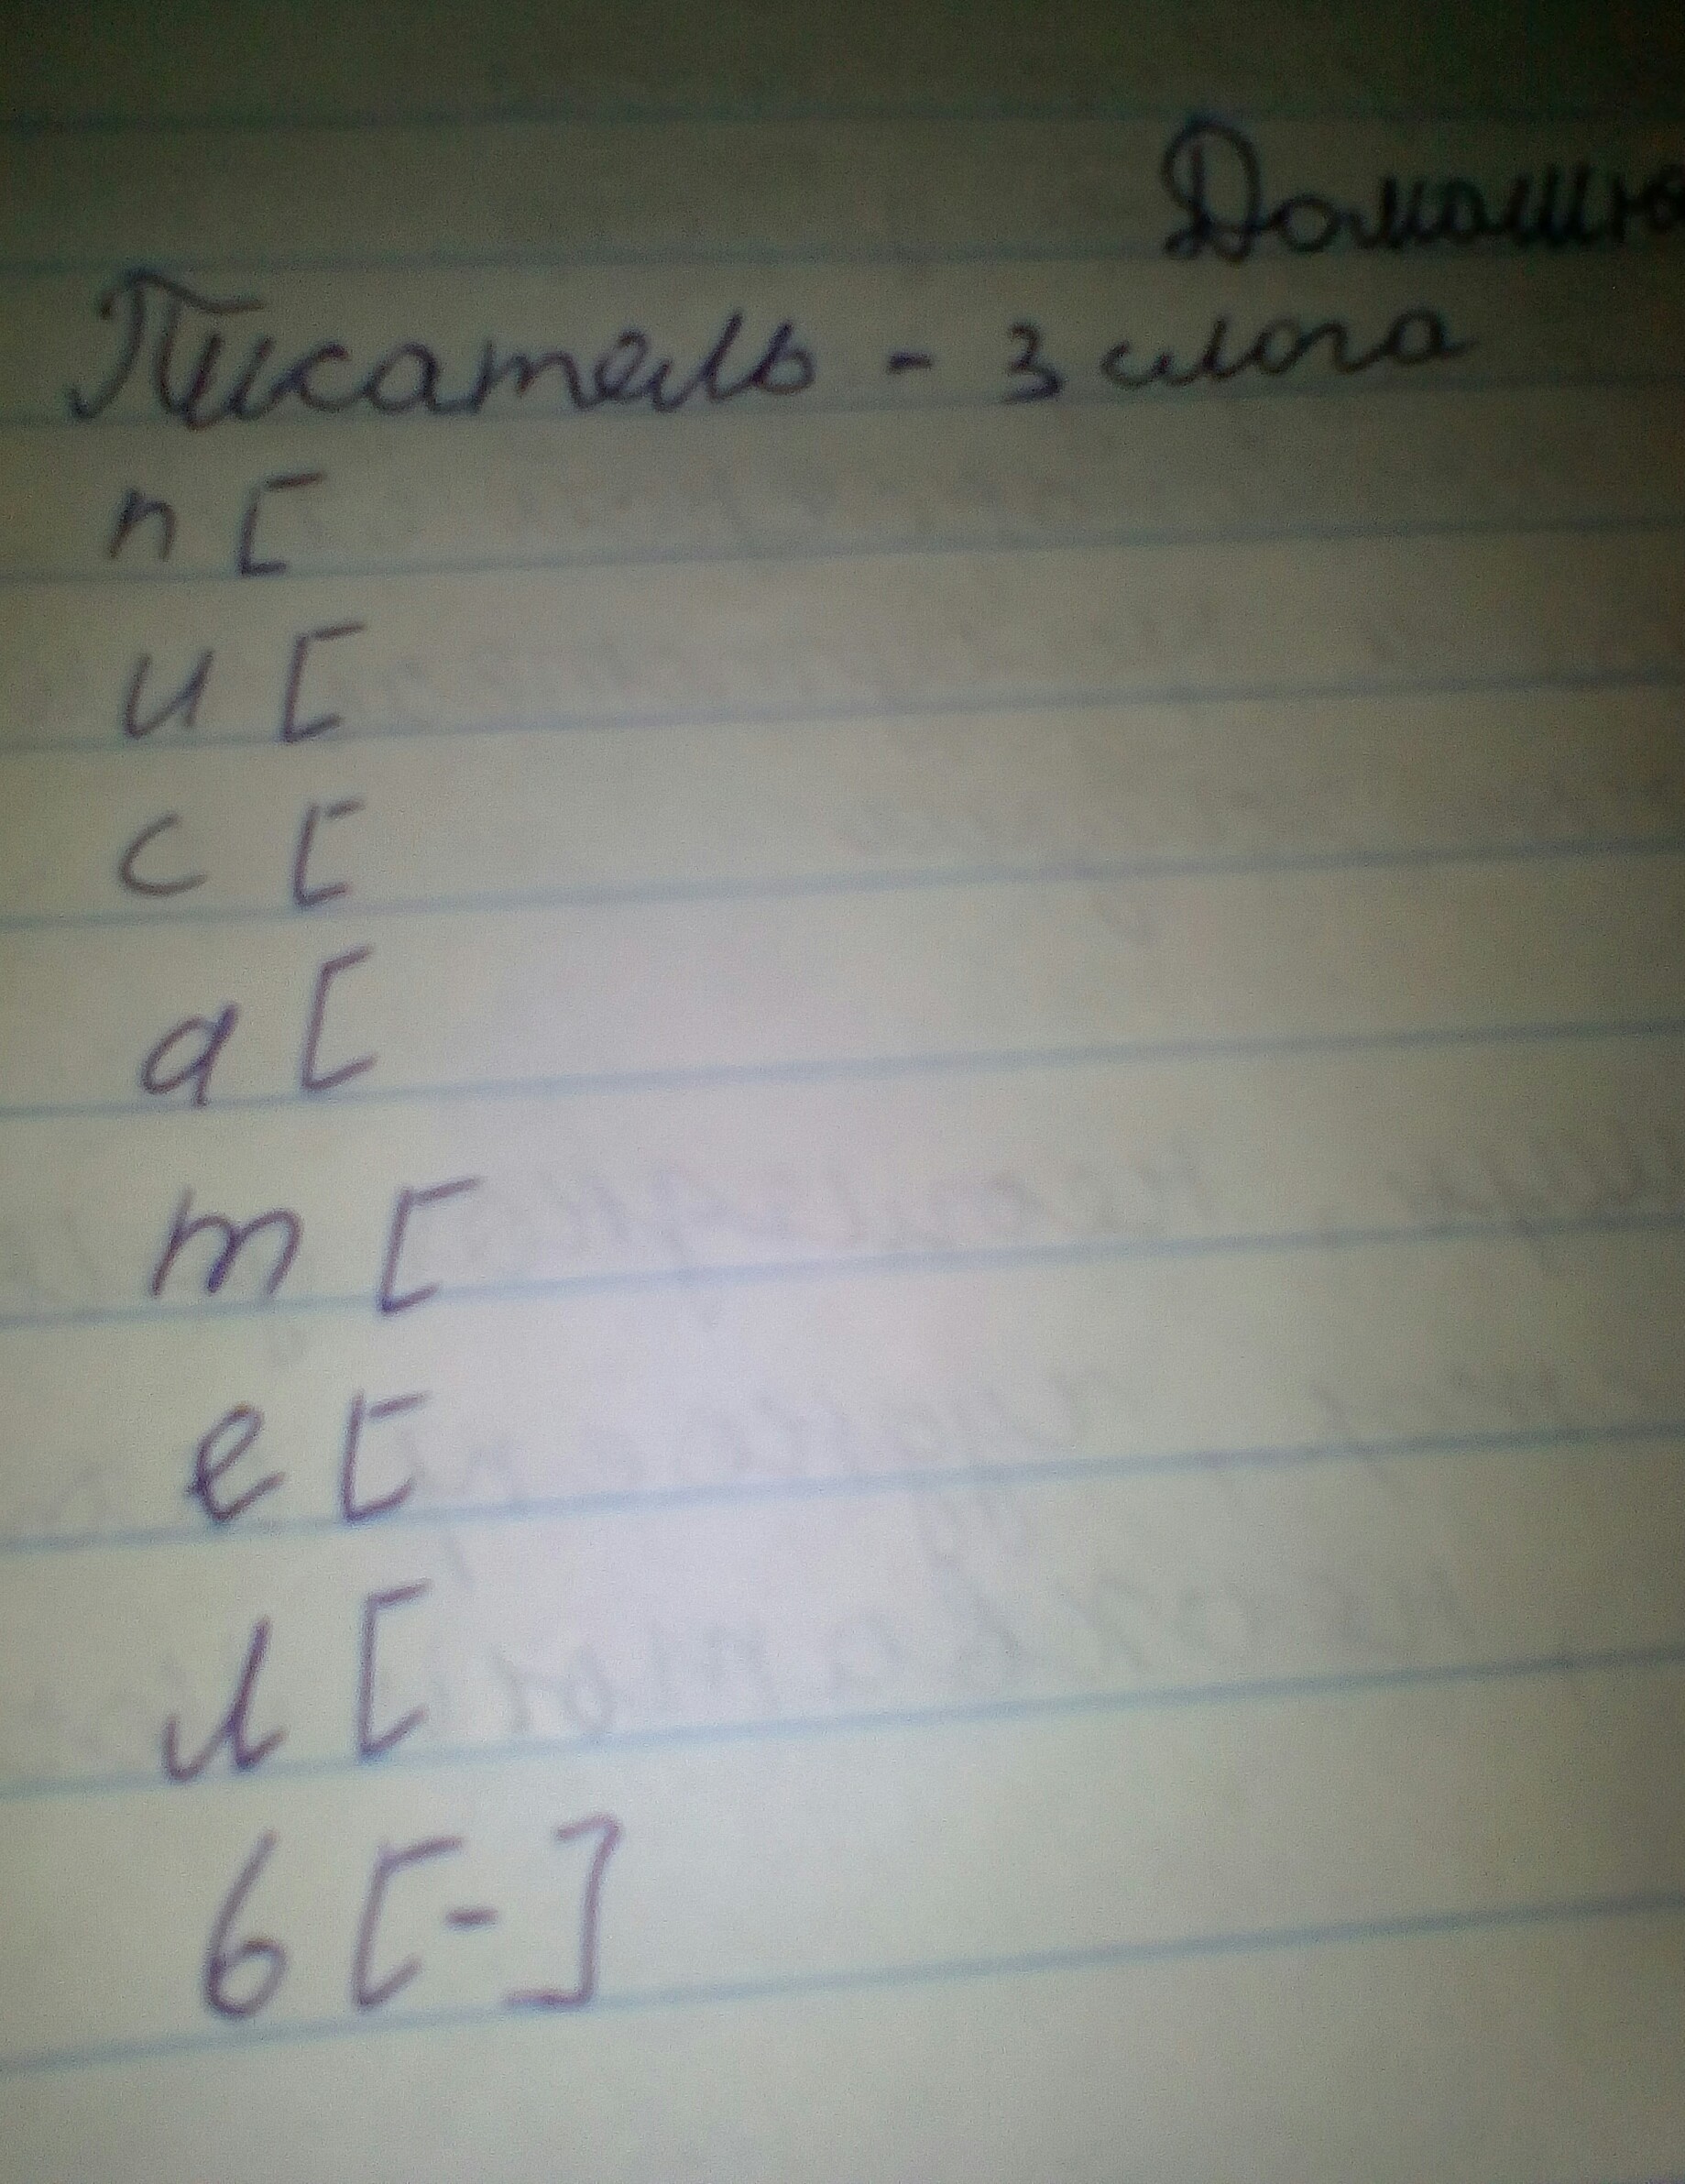 Домашня
Писатель - 3 слога
п [
и [
с [
а [
т [
е [
л [
ь [-]